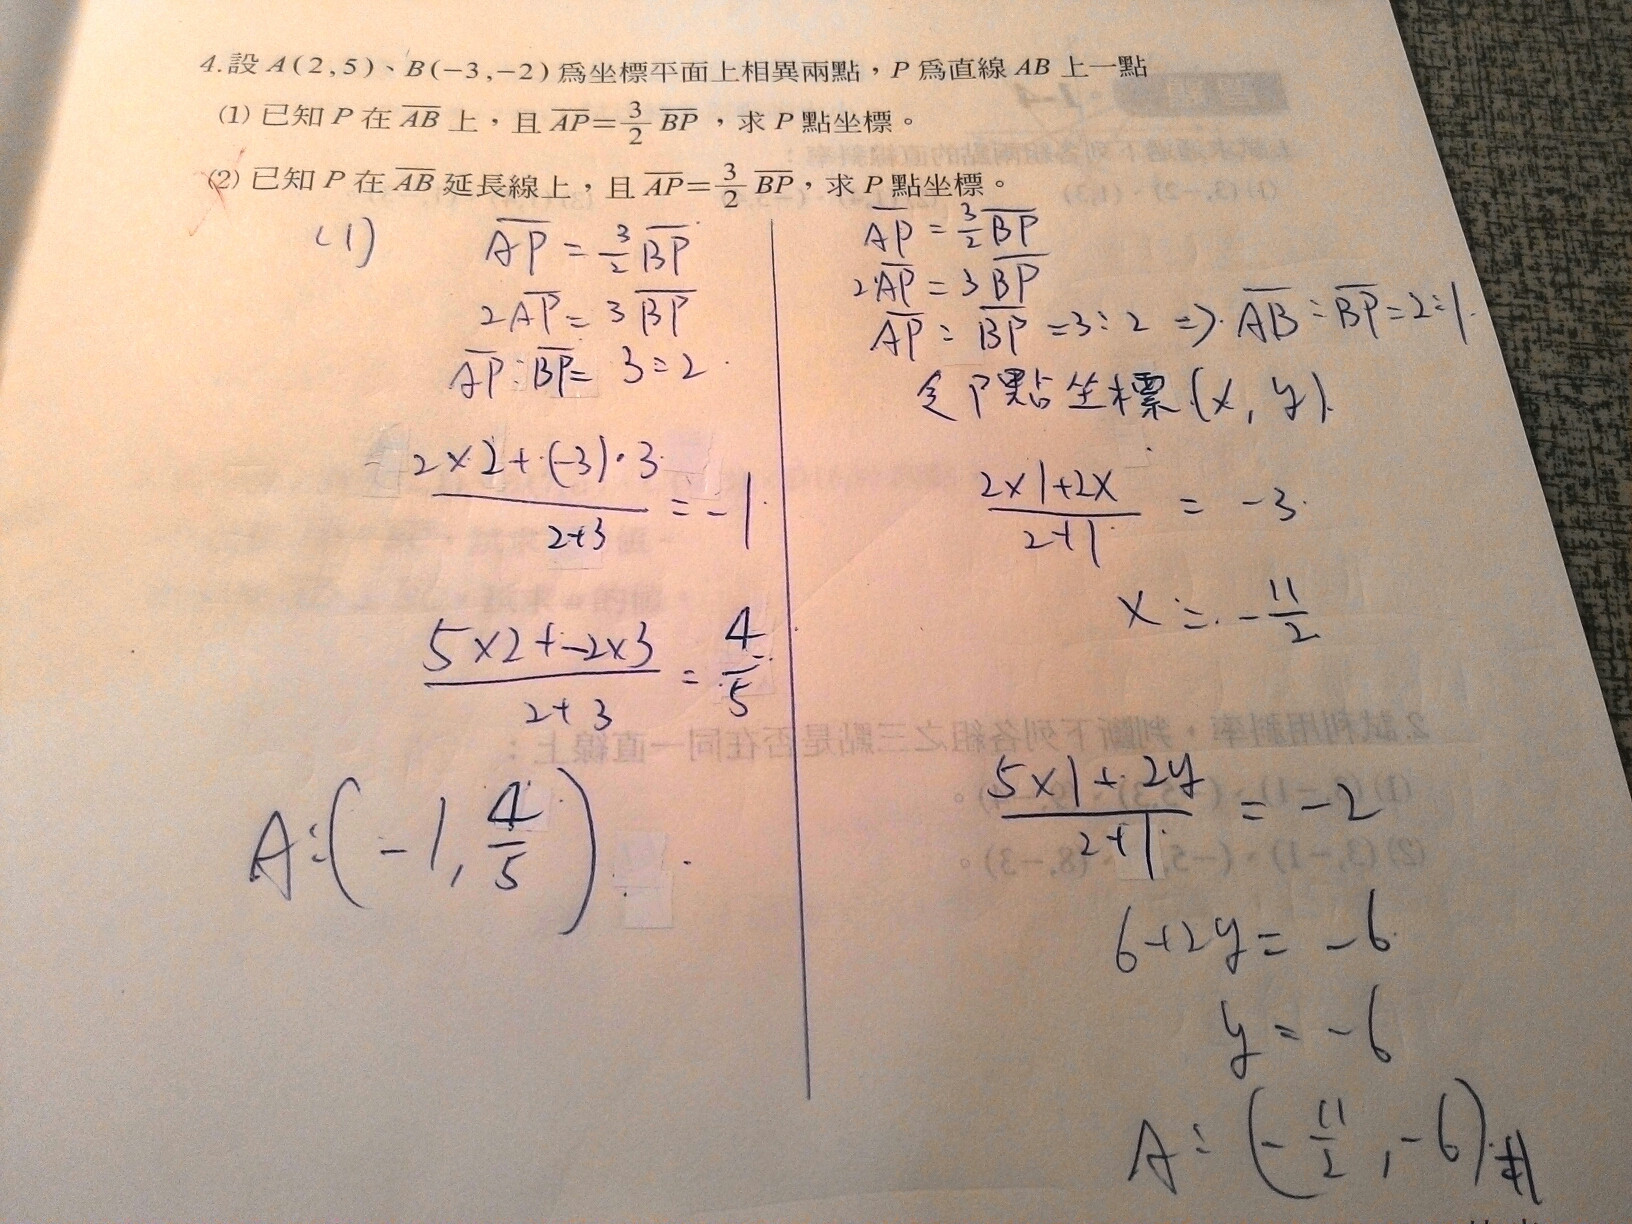 4.設 A(2,5)、B(−3,−2) 為坐標平面上相異兩點，P 為直線 AB 上一點
(1) 已知 P 在 A̅B̅ 上，且 A̅P̅=3/2 B̅P̅，求 P 點坐標。
(2) 已知 P 在 A̅B̅ 延長線上，且 A̅P̅=3/2 B̅P̅，求 P 點坐標。
(1) A̅P̅ = 3/2 B̅P̅
2A̅P̅ = 3B̅P̅
A̅P̅:B̅P̅ = 3:2
(2×2+(-3)·3)/(2+3) = -1
(5×2+-2×3)/(2+3) = 4/5
A:(-1, 4/5)
A̅P̅ = 3/2 B̅P̅
2A̅P̅ = 3B̅P̅
A̅P̅:B̅P̅ = 3:2 ⇒ A̅B̅:B̅P̅ = 2:1
令P點坐標(x, y)
(2×1+2x)/(2+1) = -3
x = -11/2
(5×1+2y)/(2+1) = -2
6+2y = -6
y = -6
A:(-11/2, -6)#
2.試利用斜率，判斷下列各組之三點是否在同一直線上：